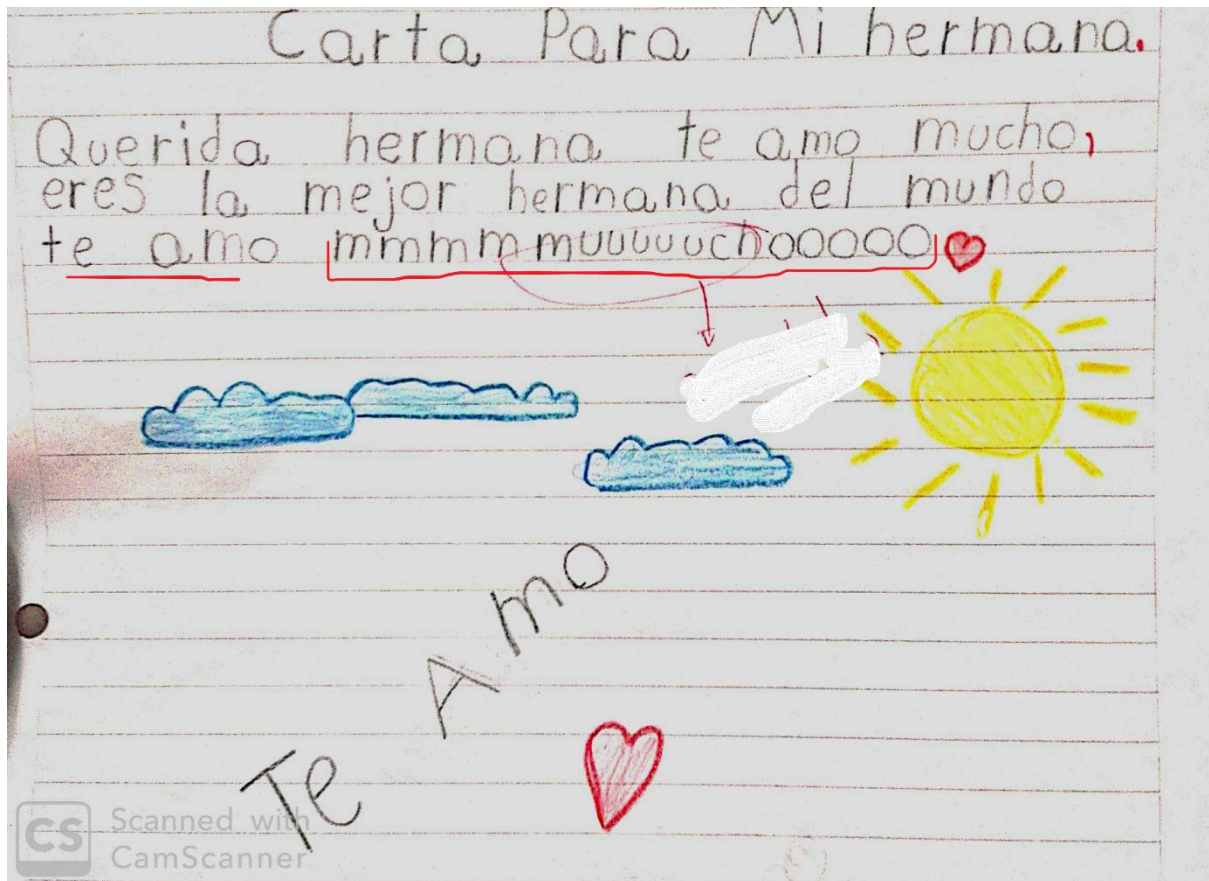 Carta Para Mi hermana.
Querida hermana te amo mucho,
eres la mejor hermana del mundo
te amo mmmmmuuuuuchooooo
Te Amo
CS Scanned with
CamScanner